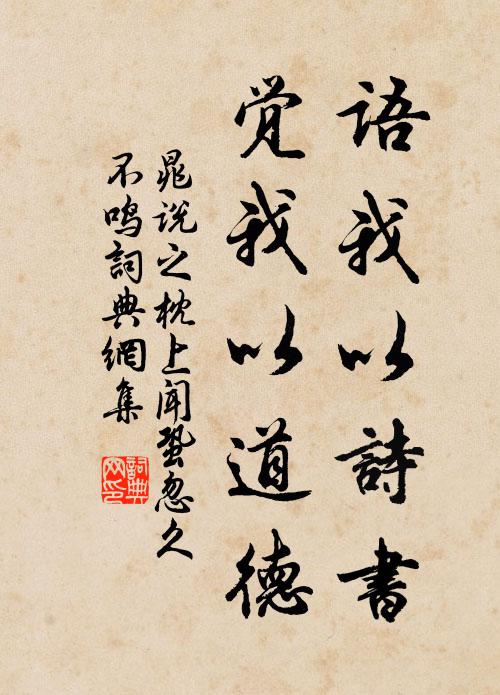 語我以詩書
覚我以道德
晁说之枕上闻蛩忽久
不鸣詞典網集
詞典
网印